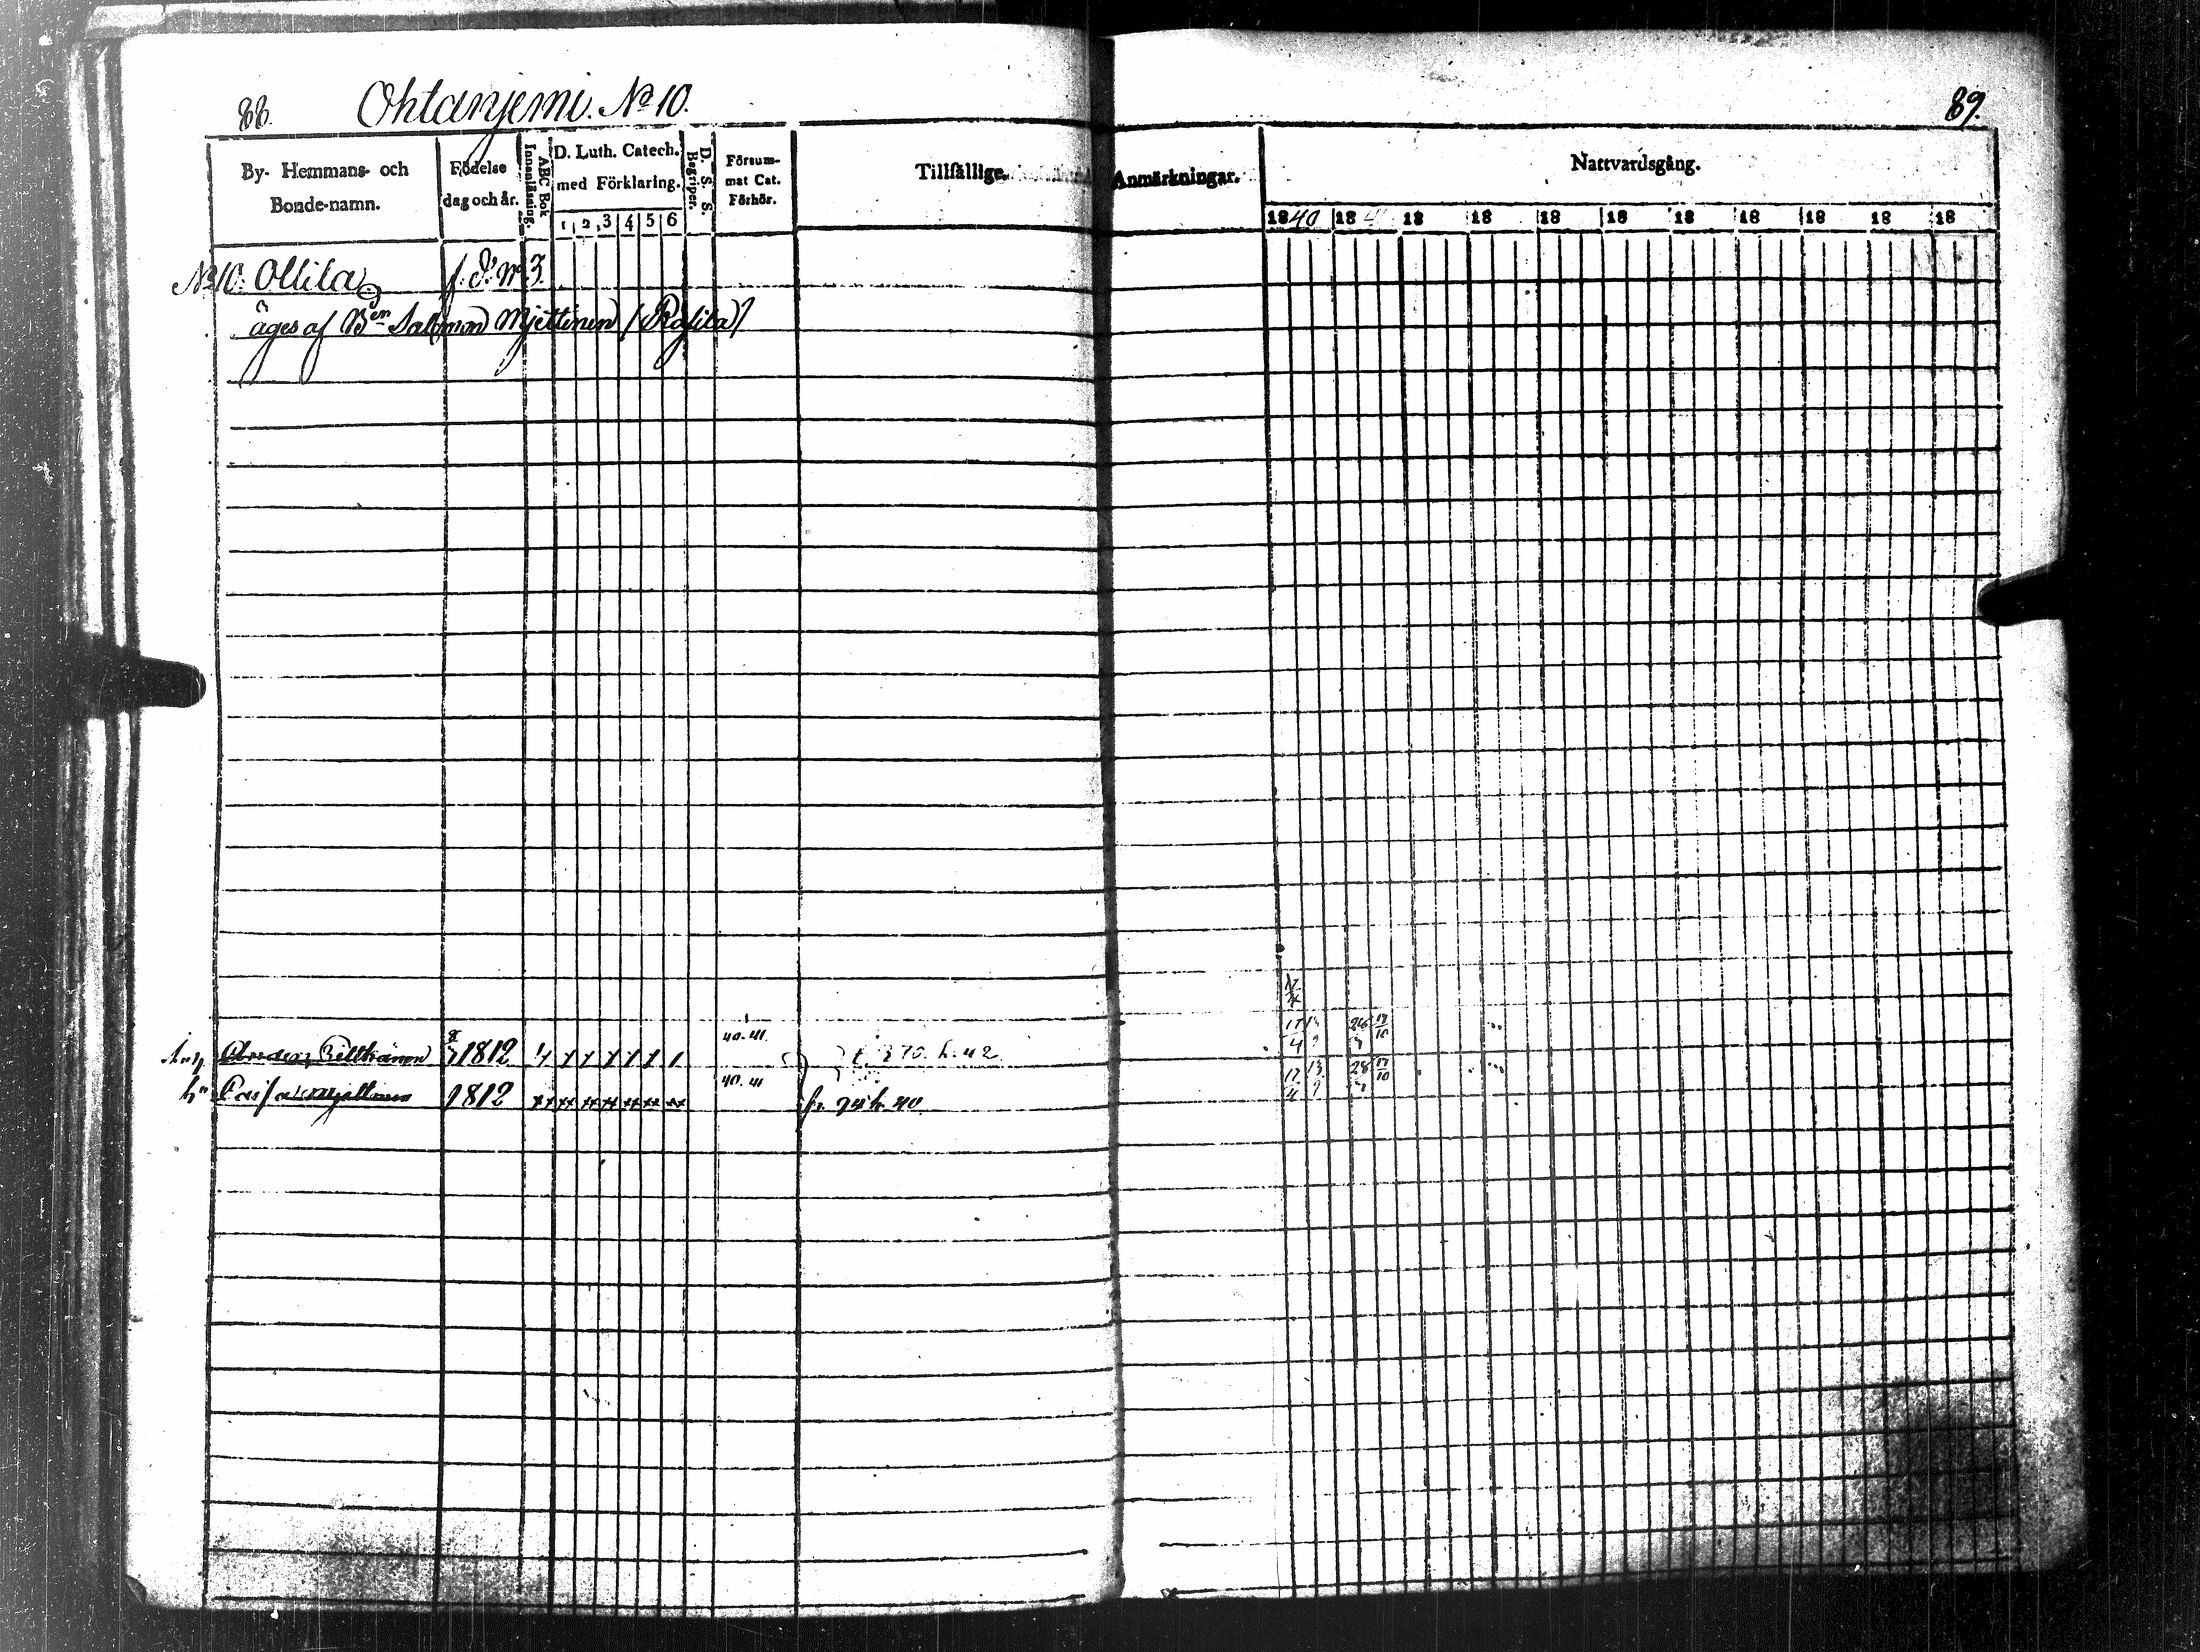 88. Ohtanjemi. No 10.
89.
By- Hemmans- och Bonde-namn.
Födelse dag och år.
ABC Bok Innanläsning.
D. Luth. Catech. med Förklaring.
1 2 3 4 5 6
D. S. S. Begriper.
Försummat Cat. Förhör.
Tillfällige Anmärkningar.
Nattvardsgång.
1840 184 18 18 18 18 18 18 18 18 18
No 10. Ollila f. d. No 3.
äges af Ben Salomon Mjettinen (Rasila)
1812 40. 41. 370. h. 42
h. Caisa Mjettinen 1812 40. 41 fr. 74 h. 40